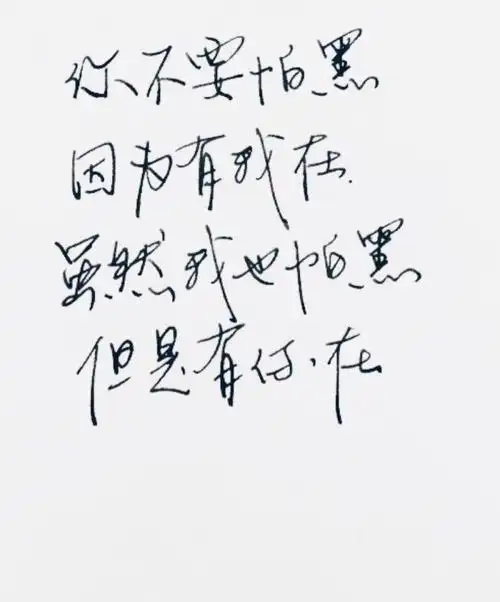 你不要怕黑
因为有我在
虽然我也怕黑
但是有你在